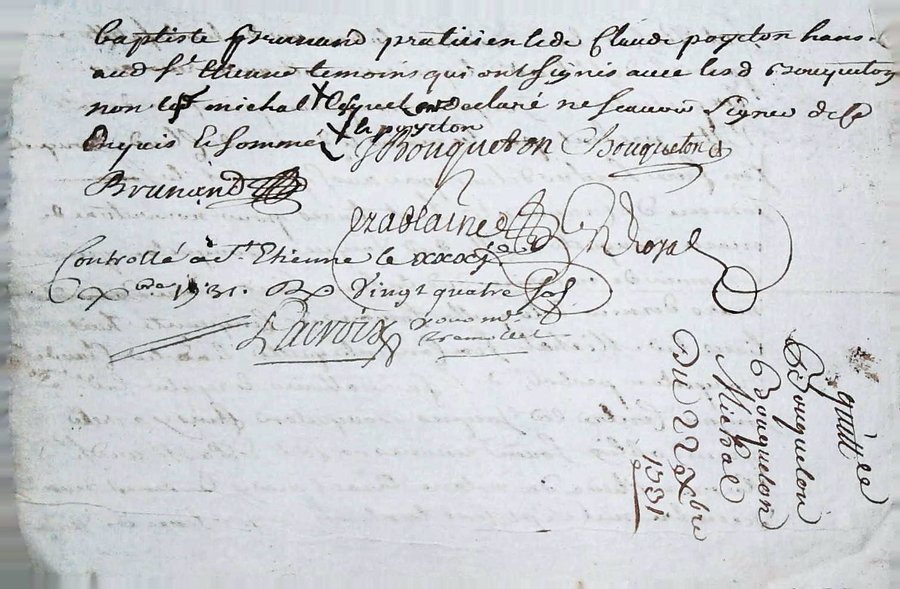 baptiste Brunand praticien et de Claude poyeton hans
aud St Etienne temoins qui ont signés avec lesd Bouqueton
non led michal lesquel ont declaré ne scavoir signer de ce
Enquis et sommé
le poyeton
Bouqueton Bouqueton
Brunand
Royal
Controllé à St Etienne le xxxj
Xbre 1731. Rx Vingt quatre sols
Lacroix
quitt
Bouqueton
Bouqueton
Michal
Du 22 Xbre
1731